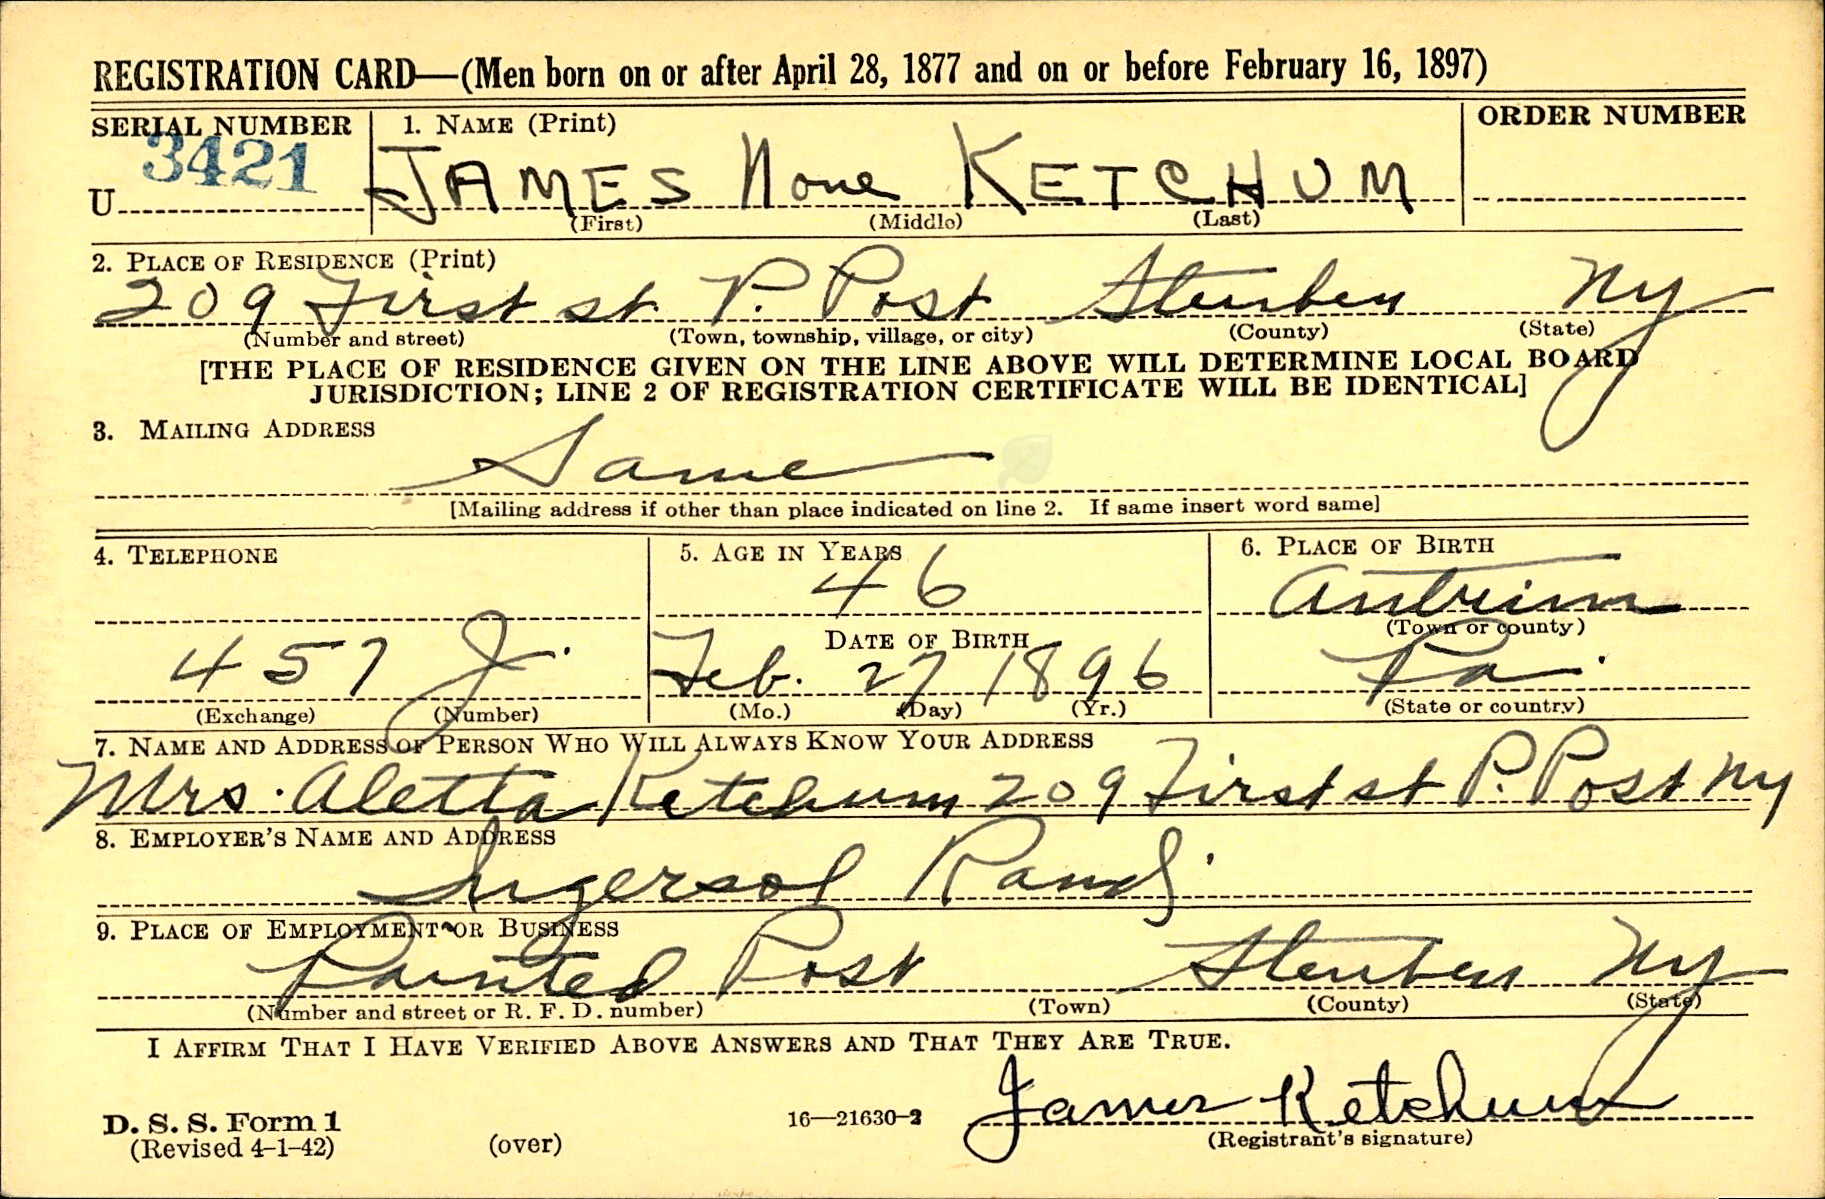 REGISTRATION CARD—(Men born on or after April 28, 1877 and on or before February 16, 1897)
SERIAL NUMBER
1. NAME (Print)
ORDER NUMBER
U 3421
JAMES None KETCHUM
(First) (Middle) (Last)
2. PLACE OF RESIDENCE (Print)
209 First st P. Post Steuben Ny
(Number and street) (Town, township, village, or city) (County) (State)
[THE PLACE OF RESIDENCE GIVEN ON THE LINE ABOVE WILL DETERMINE LOCAL BOARD
JURISDICTION; LINE 2 OF REGISTRATION CERTIFICATE WILL BE IDENTICAL]
3. MAILING ADDRESS
Same
[Mailing address if other than place indicated on line 2. If same insert word same]
4. TELEPHONE
457 J.
(Exchange) (Number)
5. AGE IN YEARS
46
DATE OF BIRTH
Feb. 27 1896
(Mo.) (Day) (Yr.)
6. PLACE OF BIRTH
Antrim
(Town or county)
Pa.
(State or country)
7. NAME AND ADDRESS OF PERSON WHO WILL ALWAYS KNOW YOUR ADDRESS
Mrs. Aletta Ketchum 209 First st P. Post Ny
8. EMPLOYER'S NAME AND ADDRESS
Ingersol Rand.
9. PLACE OF EMPLOYMENT OR BUSINESS
Painted Post Steuben Ny
(Number and street or R. F. D. number) (Town) (County) (State)
I AFFIRM THAT I HAVE VERIFIED ABOVE ANSWERS AND THAT THEY ARE TRUE.
James Ketchum
D. S. S. Form 1
(Revised 4-1-42) (over) 16—21630-2 (Registrant's signature)